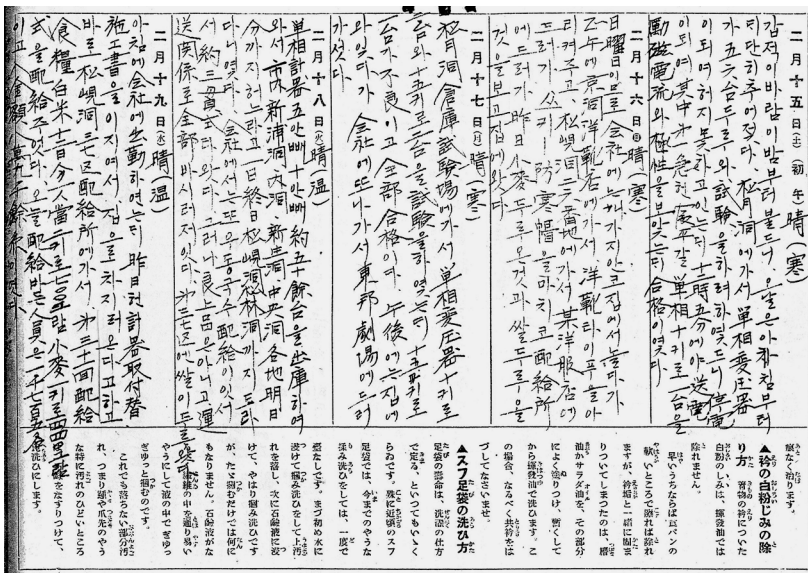 二月十五日(土)(初午)晴(寒)
갑작이바람이밤부터불드니 오날은아침부터
타단히추어젓다. 松月洞에서 單相変圧器
가五六台드루와試驗을하려하엿드니 停電
이되여허지못하고잇는디 十二時五分에야 送電
이되여其中에 急히 單相十키로一台을
励磁電流와極性을보앗는디 合格이엿다.
二月十六日(日)晴(寒)
日曜日임으로 会社에는나가지안코집에서놀다가
正午에京洞洋靴店에가서 洋靴타이프을아
티켜주고 松峴洞三三番地에가서某洋服店에
드러가 쓰키ー防寒帽을마치코配給所
에드러가 昨日小麦드루온것과쌀드루온
것을보고집에왓다.
二月十七日(月)晴(寒)
松月洞倉庫試驗場에가서 單相変圧器十키로
三台와十五키로二台을試驗을하엿는디 十五키로
一台가不良이고 全部合格이다. 午後에는집에
와잇다가 会社에또나가서 東邦劇場에드러
가섯다.
二月十八日(火)晴(温)
單相計器五안빼 十안빼 約五十餘台을出庫하여
와서 市內新浦洞內洞、新生洞中央洞各地明日
分까지허느라고 一日終日松峴洞松林洞까지도라
다니엿다. 会社에서는또우동국수配給이잇서
서 約三貫식타왓다. 그러나良品은아니고運
送関係로全部바시러저잇다. 第三七区에쌀이드르왓다
二月十九日(水)晴(温)
아침에会社에出勤하엿는디 昨日헌計器取付替
施工書을이지여서 집으로차지러오다고하고
바로松峴洞三七区配給所에가서、第三十一回配給
食糧白米十二日分一人當二키로 小麦一키로
式을配給주엇다. 오늘配給바든人員은一千七百五名
이고 金額八萬九千餘円이엿다.
痕なく治ります。
▲衿の白粉じみの除
り方 着物の衿についた
白粉のしみは、揮發油では
除れません。
早いうちならば食パンの
軟いところで擦れば除れ
ますが、衿垢と一緒に固ま
りついてしまつたのは、椿
油かサラダ油を、その部分
によく塗りつけ、暫くして
から揮發油で洗ひます。こ
の場合、なるべく共衿をは
づしてなさいませ。
▲スフ足袋の洗ひ方
足袋の壽命は、洗濯の仕方
で定る、といつてもいゝく
らゐです。殊に近頃のスフ
足袋では、今までのやうな
揉み洗ひをしては、一度で
臺なしです。まづ初め水に
浸けて摑み洗ひをして上汚
れを落し、次に石鹸液に浸
けて、やはり摑み洗ひです
が、たゞ摑むだけでは何に
もなりません。石鹸液がな
纖維の中を通り易い
やうにして液の中でぎゆつ
ぎゆつと摑むのです。
これでも落ちない部分汚
れ、つまり踵や爪先のやう
な特に汚れのひどいところ
をなすりつけて、
洗ひにします。